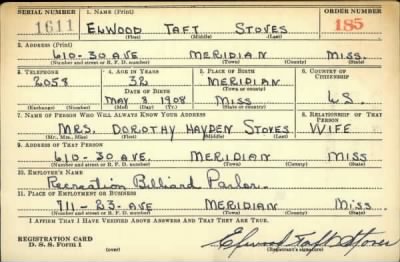 SERIAL NUMBER 1. NAME (Print) ORDER NUMBER
1611 ELWOOD TAFT STOVES 185
(First) (Middle) (Last)
2. ADDRESS (Print)
610-30 AVE MERIDIAN MISS.
(Number and street or R. F. D. number) (Town) (County) (State)
3. TELEPHONE 4. AGE IN YEARS 5. PLACE OF BIRTH 6. COUNTRY OF CITIZENSHIP
2058 32 MERIDIAN
(Town or county)
DATE OF BIRTH
MAY 8 1908 MISS U.S.
(Exchange) (Number) (Mo.) (Day) (Yr.) (State or country)
7. NAME OF PERSON WHO WILL ALWAYS KNOW YOUR ADDRESS 8. RELATIONSHIP OF THAT PERSON
MRS. DOROTHY HAYDEN STOVES WIFE
(Mr., Mrs., Miss) (First) (Middle) (Last)
9. ADDRESS OF THAT PERSON
610-30-AVE. MERIDIAN MISS
(Number and street or R. F. D. number) (Town) (County) (State)
10. EMPLOYER'S NAME
Recreation Billiard Parlor.
11. PLACE OF EMPLOYMENT OR BUSINESS
911-23-AVE MERIDIAN Miss.
(Number and street or R. F. D. number) (Town) (County) (State)
I AFFIRM THAT I HAVE VERIFIED ABOVE ANSWERS AND THAT THEY ARE TRUE.
REGISTRATION CARD
D. S. S. Form 1 (over) Elwood Taft Stoves
(Registrant's signature)